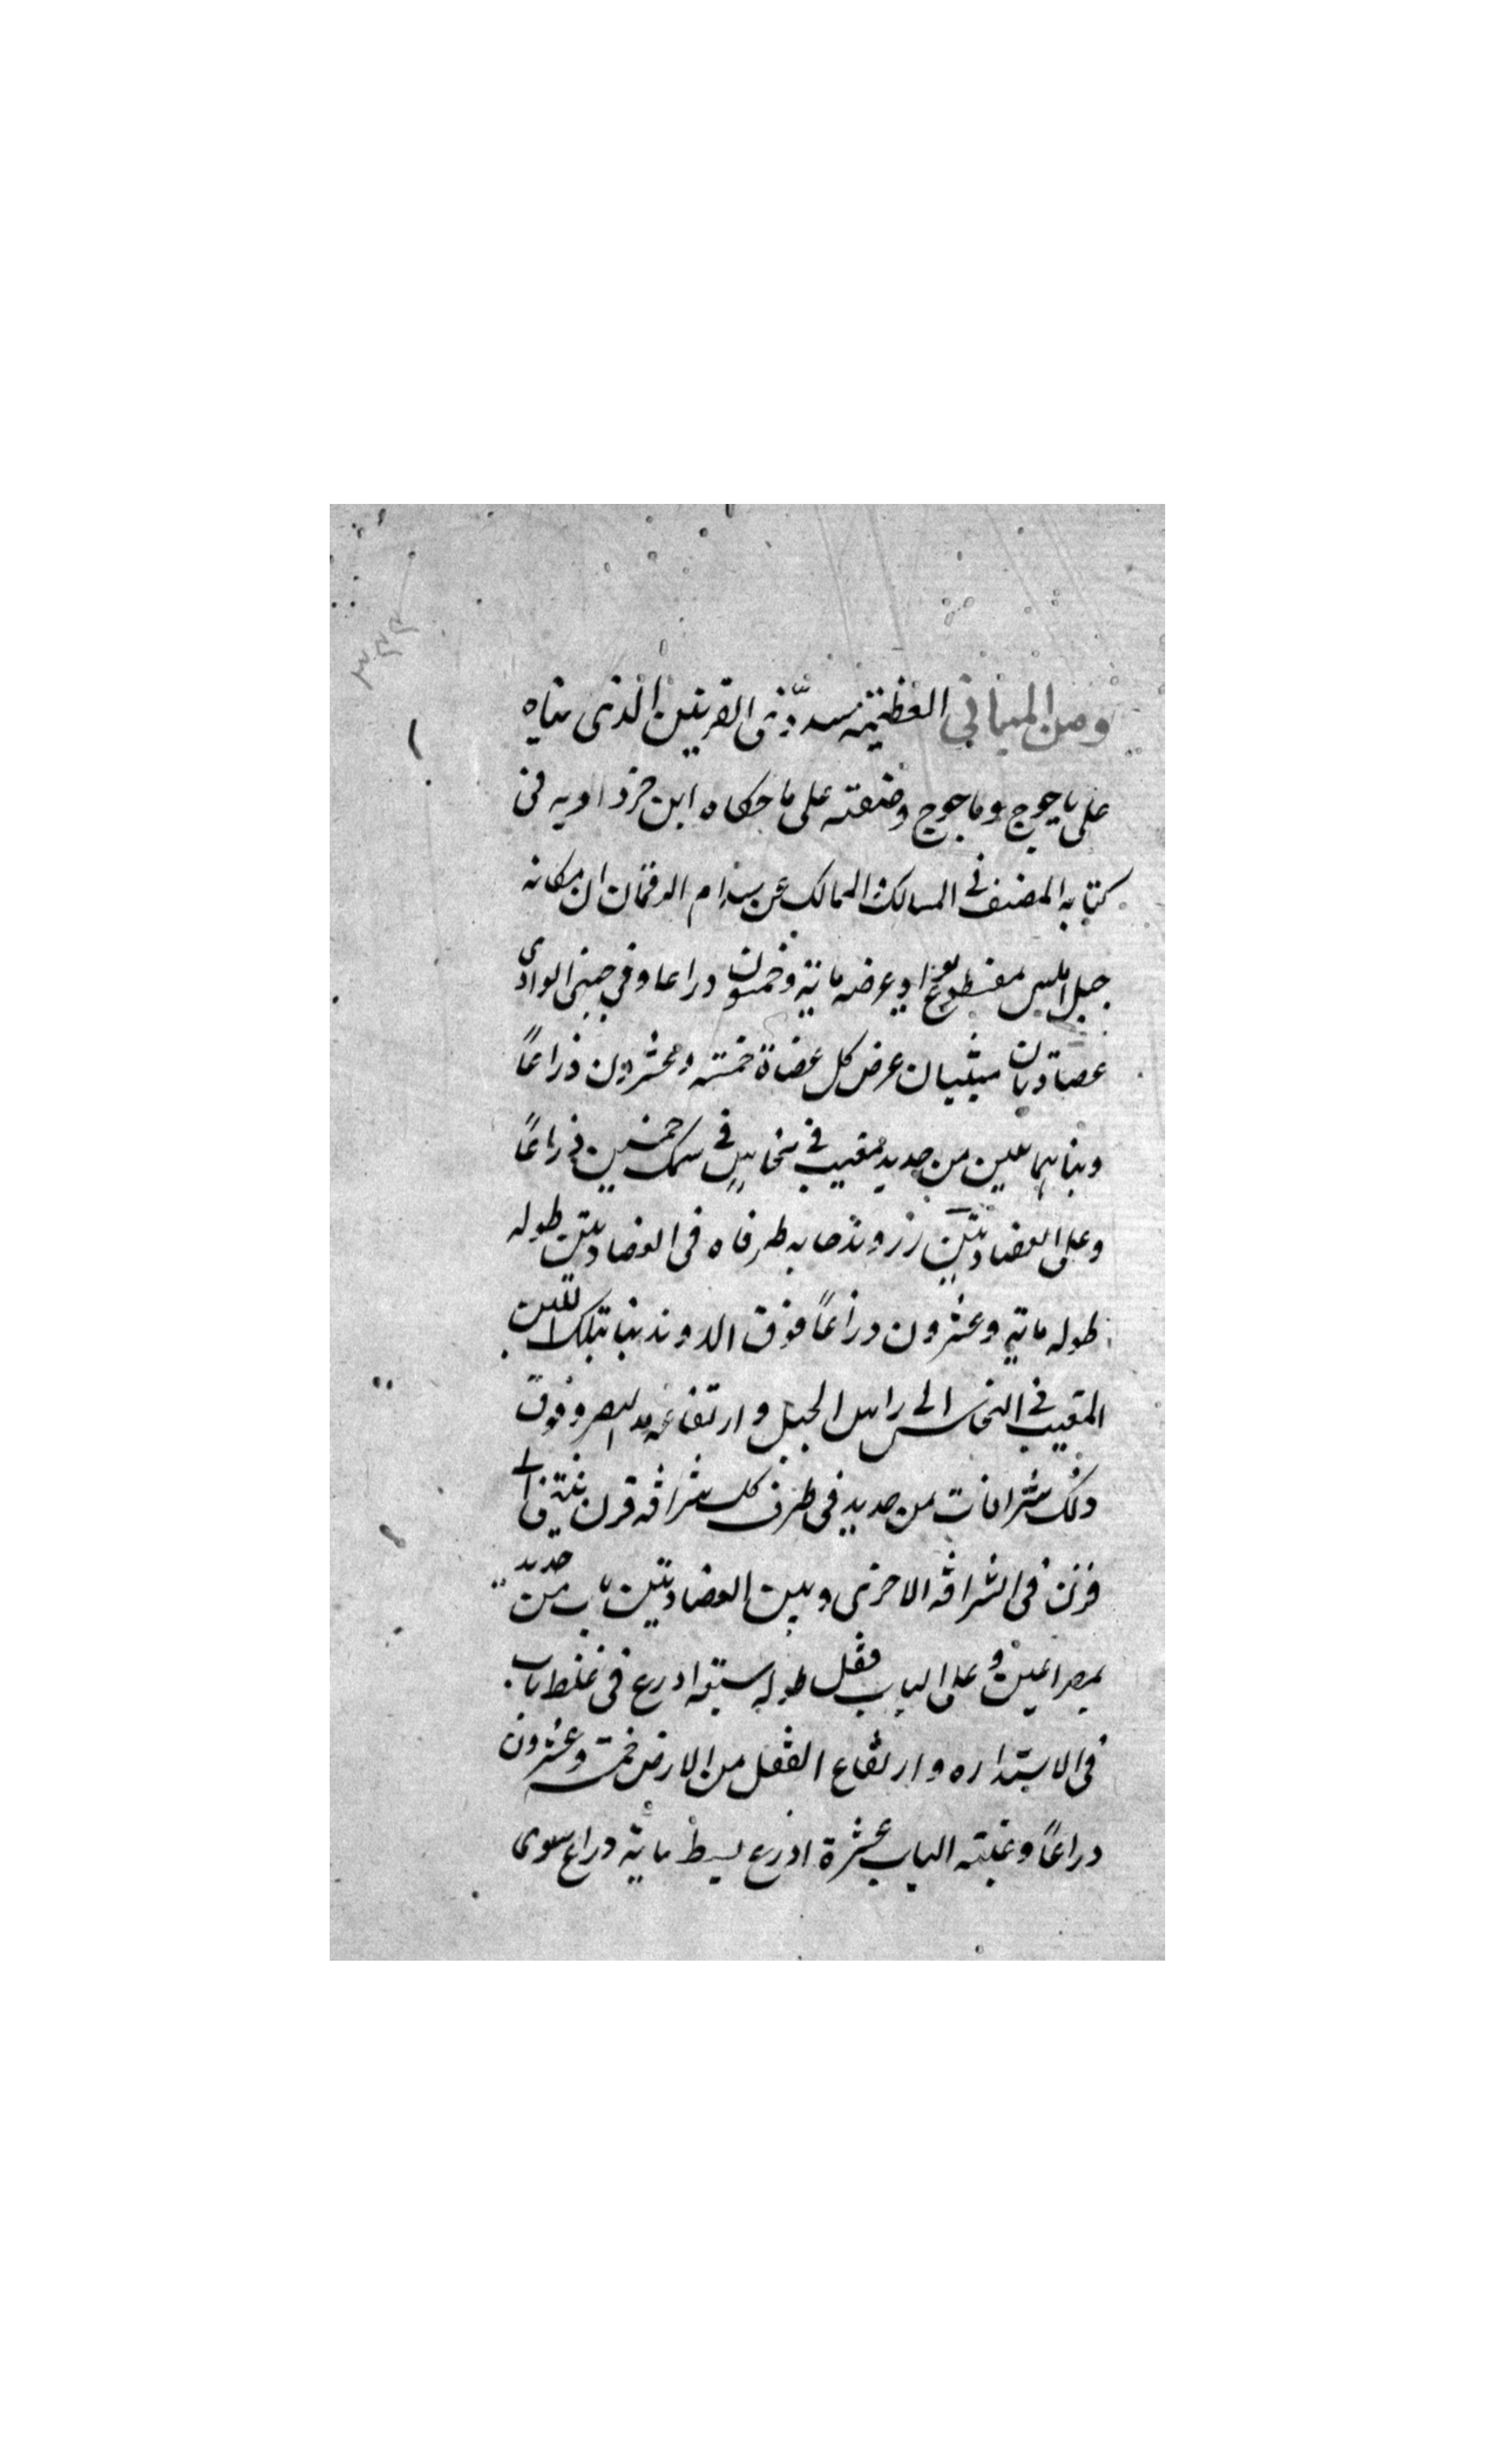 ومن المباني العظيمة سدّ ذى القرنين الذى بناه
على ياجوج وماجوج وصفته على ما حكاه ابن خرداويه فى
كتابه المصنف فى المسالك الممالك عن سلام الرقمان ان مكانه
جبل املس مقطوع بواد عرضه ماية وخمسون دراعا وفي جنبى الوادى
عضادتان مبنيان عرض كل عضاة خمسة وعشرون ذراعًا
وبناهما بلبن من حديد مغيب في نحاس في سمك خمسين ذراعًا
وعلى العضادتين زروند حابه طرفاه فى العضادتين طوله
طوله ماية وعشرون دراعًا فوق الدوند بنا بتلك اللبن
المغيب في النحاس الى راس الجبل وارتفاعه مد البصر وفوق
ذلك شرافات من حديد فى طرف كل شرافه قرن يثنى الى
قرن فى الشرافه الاخرى وبين العضادتين باب من حديد
بمصراعين وعلى الباب قفل طوله سبعة ادرع فى غلظ باب
فى الاستداره وارتفاع القفل من الارض خمسة وعشرون
دراعًا وعتبته الباب عشرة اذرع بسيط ماية دراع سوى